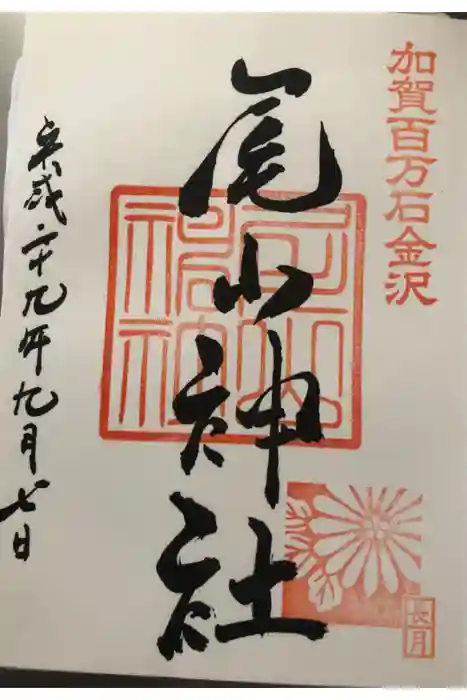 加賀百万石金沢
尾山神社
平成二十九年九月七日
長月